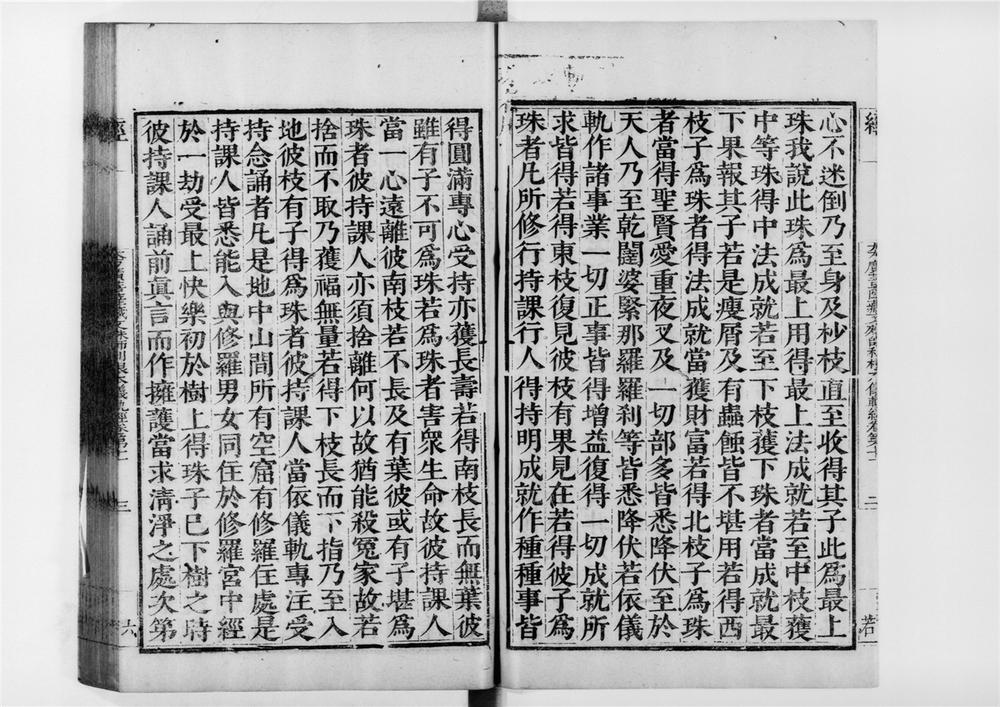 心不迷倒乃至身及杪枝直至收得其子此爲最上
珠我說此珠爲最上用得最上法成就若至中枝獲
中等珠得中法成就若至下枝獲下珠者當成就最
下果報其子若是瘦屑及有蟲蝕皆不堪用若得西
枝子爲珠者得法成就當獲財富若得北枝子爲珠
者當得聖賢愛重夜叉及一切部多皆悉降伏至於
天人乃至乾闥婆緊那羅羅刹等皆悉降伏若依儀
軌作諸事業一切正事皆得增益復得一切成就所
求皆得若得東枝復見彼枝有果見在若得彼子爲
珠者凡所修行持課行人得持明成就作種種事皆
得圓滿專心受持亦獲長壽若得南枝長而無葉彼
雖有子不可爲珠若爲珠者害衆生命故彼持課人
當一心遠離彼南枝若不長及有葉彼或有子堪爲
珠者彼持課人亦須捨離何以故猶能殺冤家故若
捨而不取乃獲福無量若得下枝長而下指乃至入
地彼枝有子得爲珠者彼持課人當依儀軌專注受
持念誦者凡是地中山間所有空窟有修羅住處是
持課人皆悉能入與修羅男女同住於修羅宮中經
於一劫受最上快樂初於樹上得珠子已下樹之時
彼持課人誦前眞言而作擁護當求淸淨之處次第
經
三
六